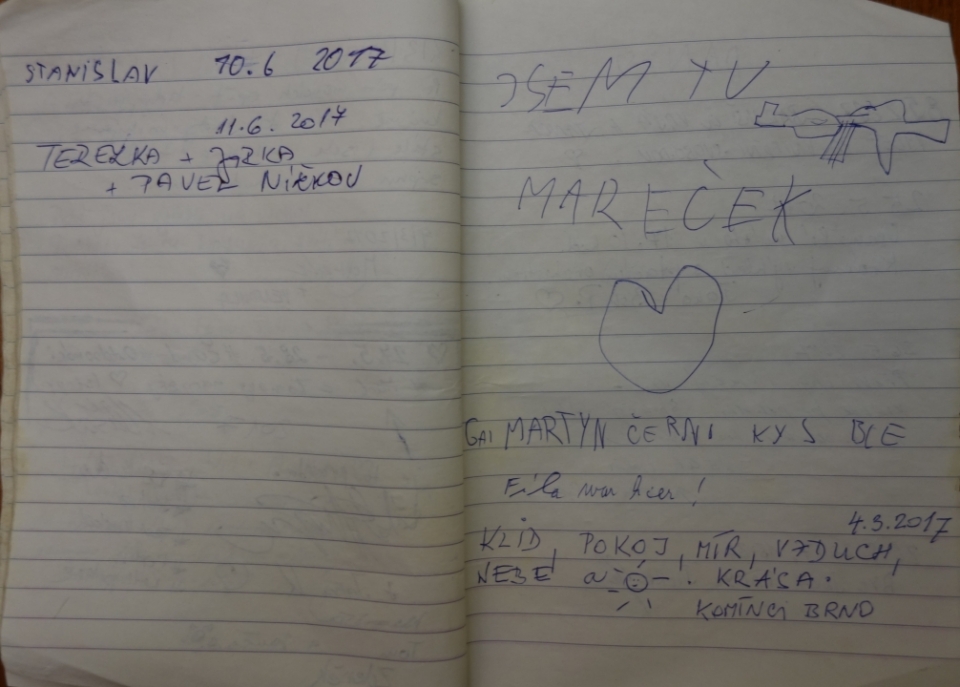 STANISLAV 10.6 2017
11.6.2017
TEREZKA + JIRKA
+ PAVEL
JSEM TU
MAREČEK
GAI MARTYN ČERNI KYS BLE
war hier!
4.3.2017
KLID, POKOJ, MÍR, VZDUCH,
NEBE a . KRÁSA.
KOMÍNCI BRNO